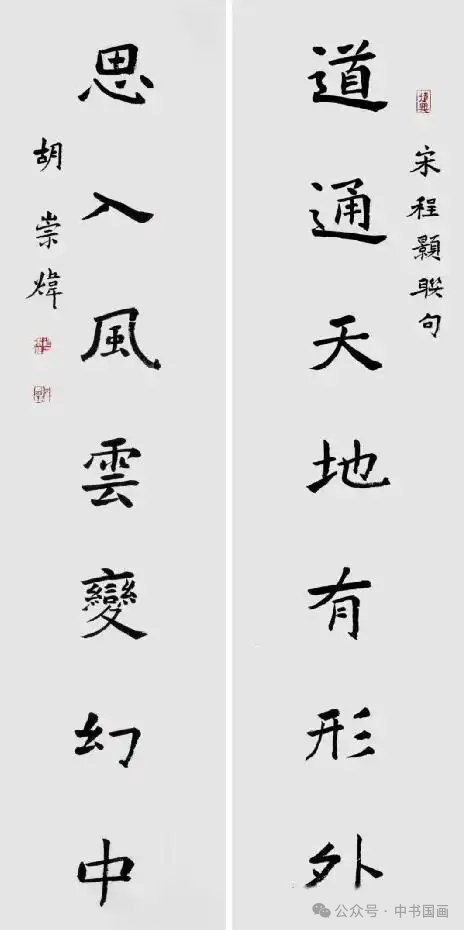 宋程顥聯句
道通天地有形外
思入風雲變幻中
胡崇煒
公众号·中书国画